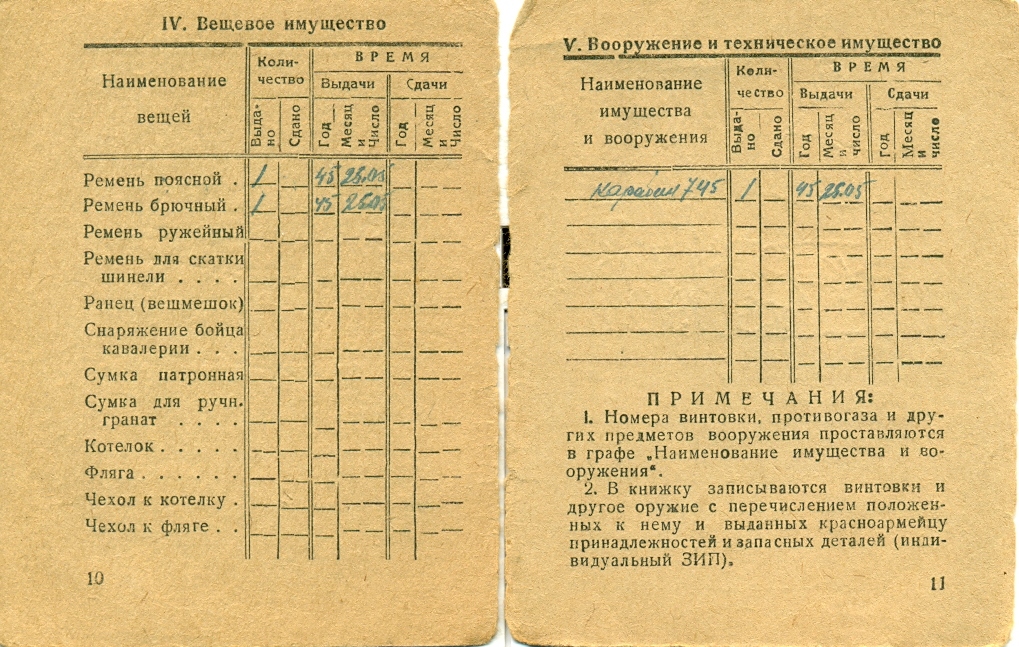 IV. Вещевое имущество
Наименование
вещей
Коли-
чество
ВРЕМЯ
Выдачи
Сдачи
Выда-
но
Сдано
Год
Месяц
и
Число
Год
Месяц
и
Число
Ремень поясной . 1 45 26.05
Ремень брючный . 1 45 26.05
Ремень ружейный
Ремень для скатки
шинели . . . .
Ранец (вешмешок)
Снаряжение бойца
кавалерии . . .
Сумка патронная
Сумка для ручн.
гранат . . . .
Котелок . . . . .
Фляга . . . . . .
Чехол к котелку .
Чехол к фляге . .
10
V. Вооружение и техническое имущество
Наименование
имущества
и вооружения
Коли-
чество
ВРЕМЯ
Выдачи
Сдачи
Выда-
но
Сдано
Год
Месяц
и
число
Год
Месяц
и
число
Карабин 745 1 45 26.05
ПРИМЕЧАНИЯ:
1. Номера винтовки, противогаза и дру-
гих предметов вооружения проставляются
в графе „Наименование имущества и во-
оружения“.
2. В книжку записываются винтовки и
другое оружие с перечислением положен-
ных к нему и выданных красноармейцу
принадлежностей и запасных деталей (инди-
видуальный ЗИП).
11